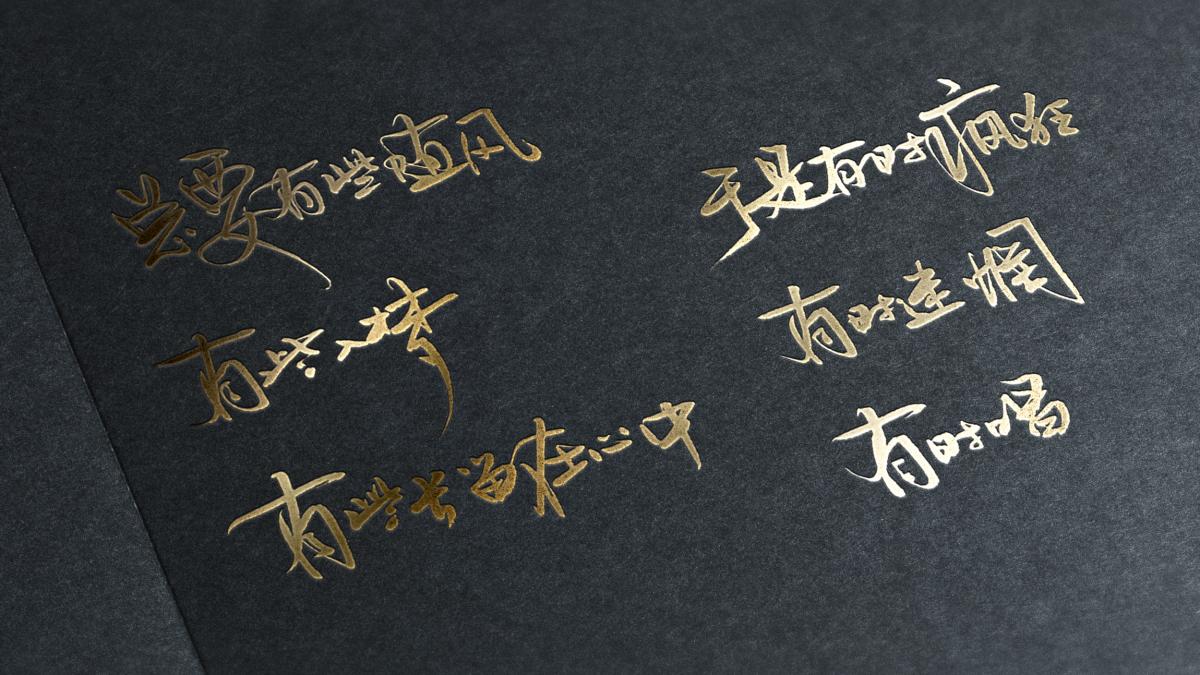 总要有些随风
有些入梦
有些长留在心中
于是有时疯狂
有时迷惘
有时唱